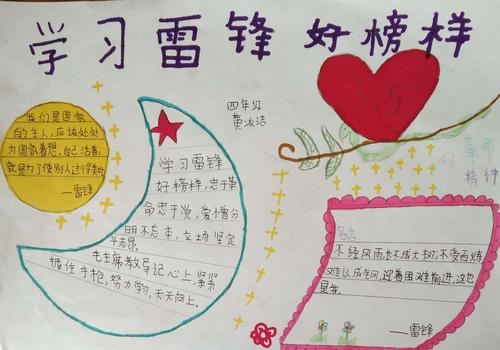 学习雷锋 好榜样
四年级
黄冰洁
我们是国家
的主人，应该处处
为国家着想。自己活着，
就是为了使别人过得美好
——雷锋
学习雷锋
好榜样，忠于革
命忠于党，爱憎分
明不忘本，立场坚定
斗志昂
毛主席教导记心上，紧紧
握住手枪，努力学习，天天向上。
5
革命
精神
名言
不经风雨，长不成大树，不受百炼
难以成钢，迎着困难前进，这也
是我
——雷锋